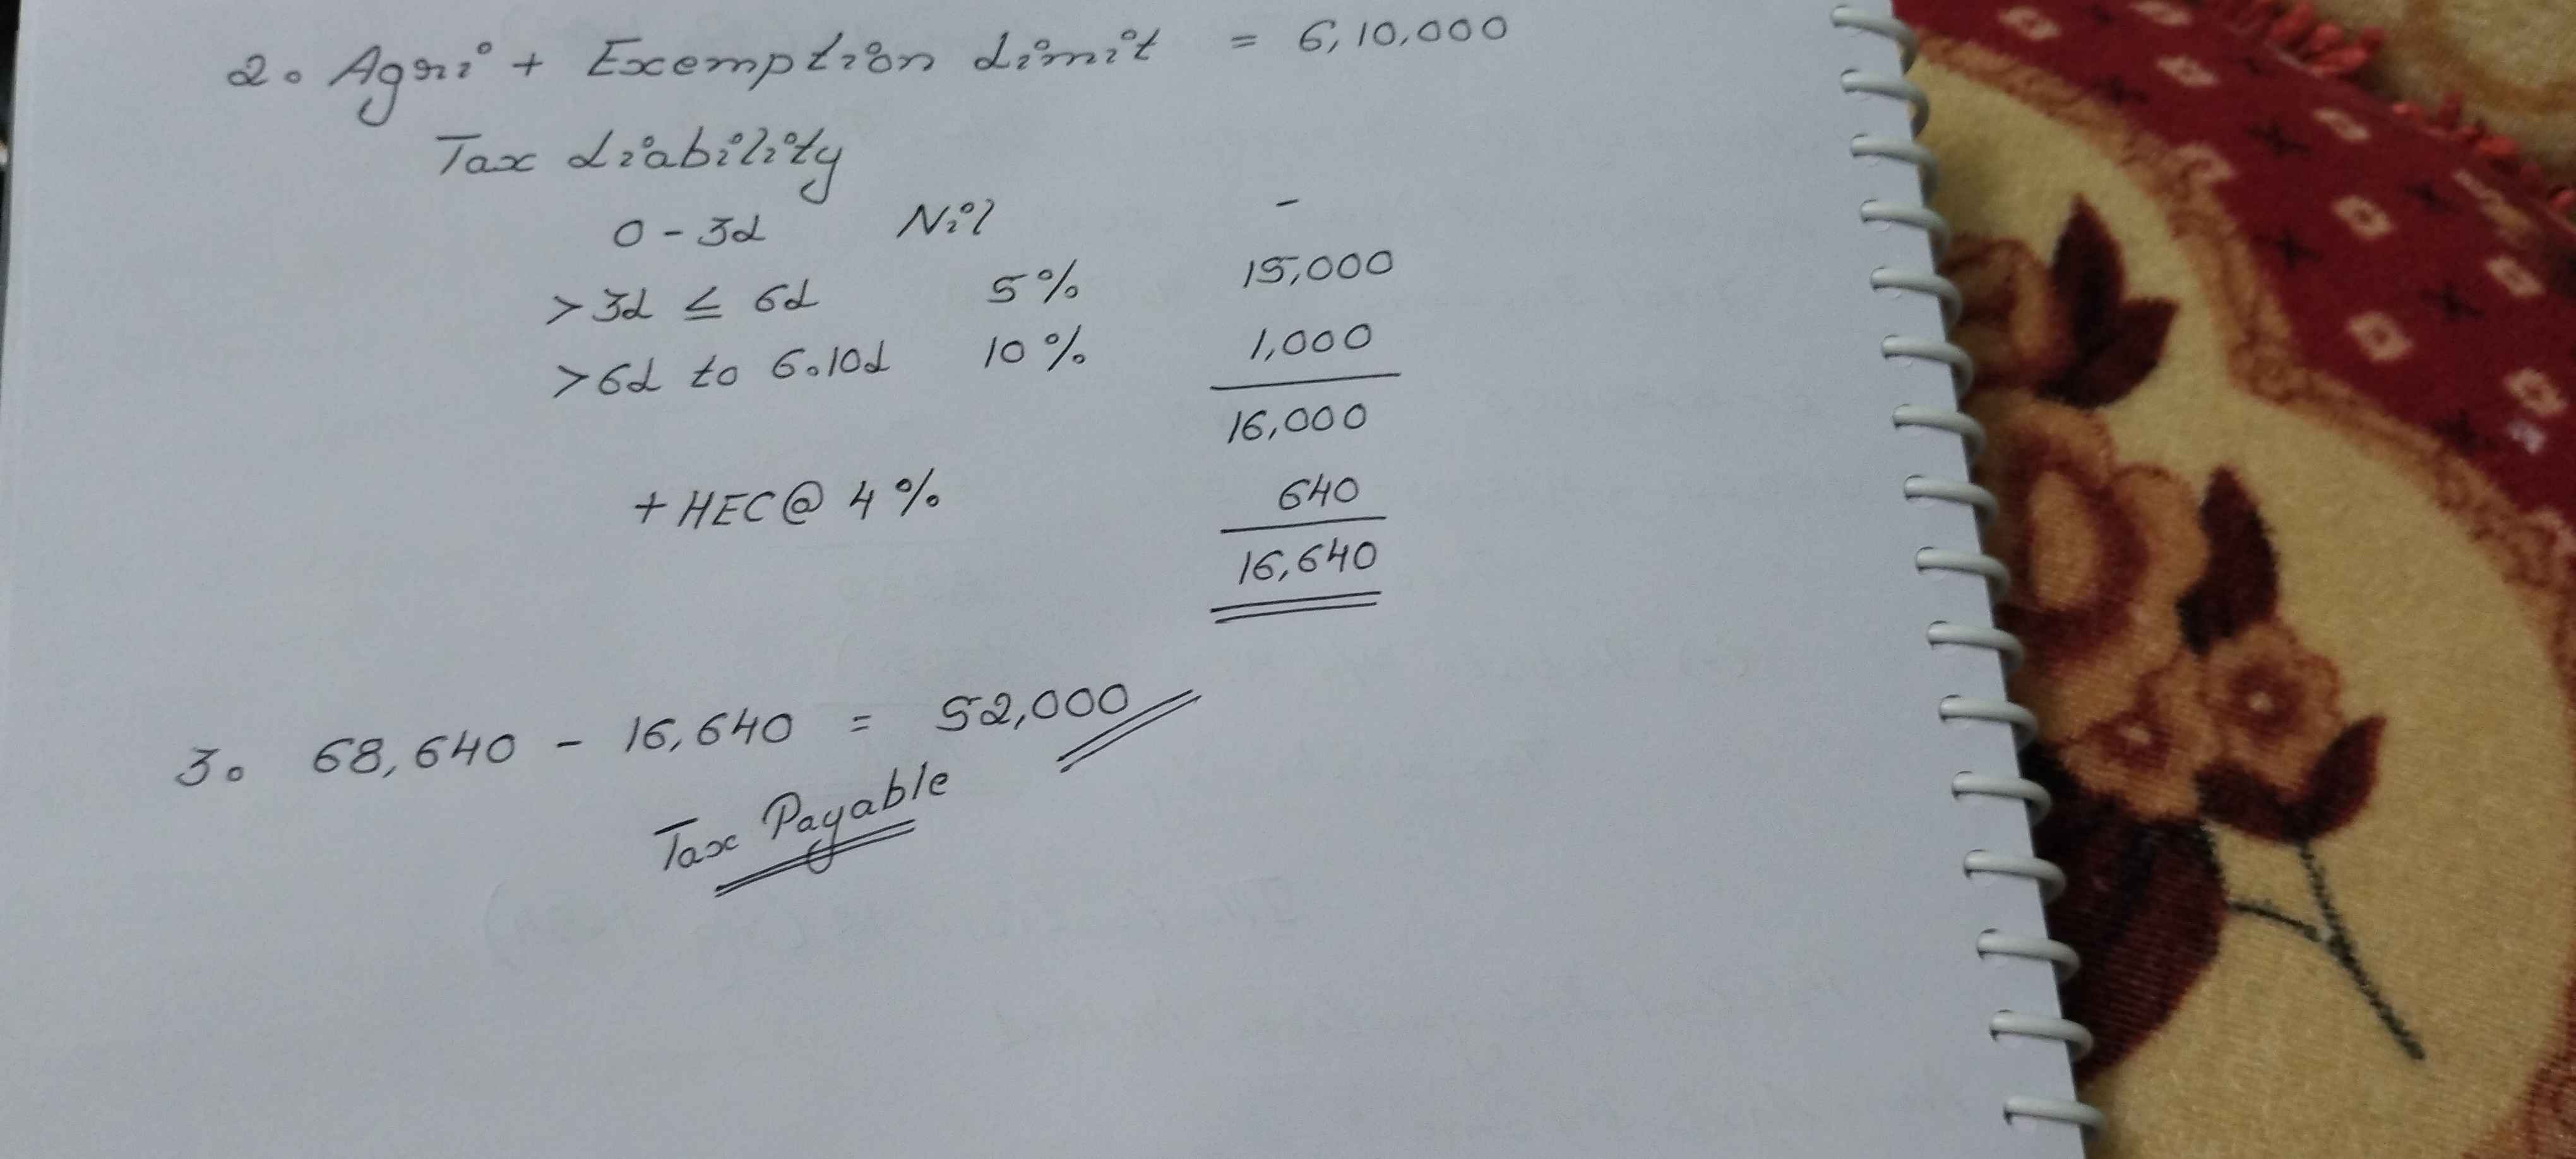 2. Agri + Exemption Limit = 6,10,000
Tax Liability
0 - 3L Nil -
>3L ≤ 6L 5% 15,000
>6L to 6.10L 10% 1,000
16,000
+ HEC @ 4% 640
16,640
3. 68,640 - 16,640 = 52,000
Tax Payable